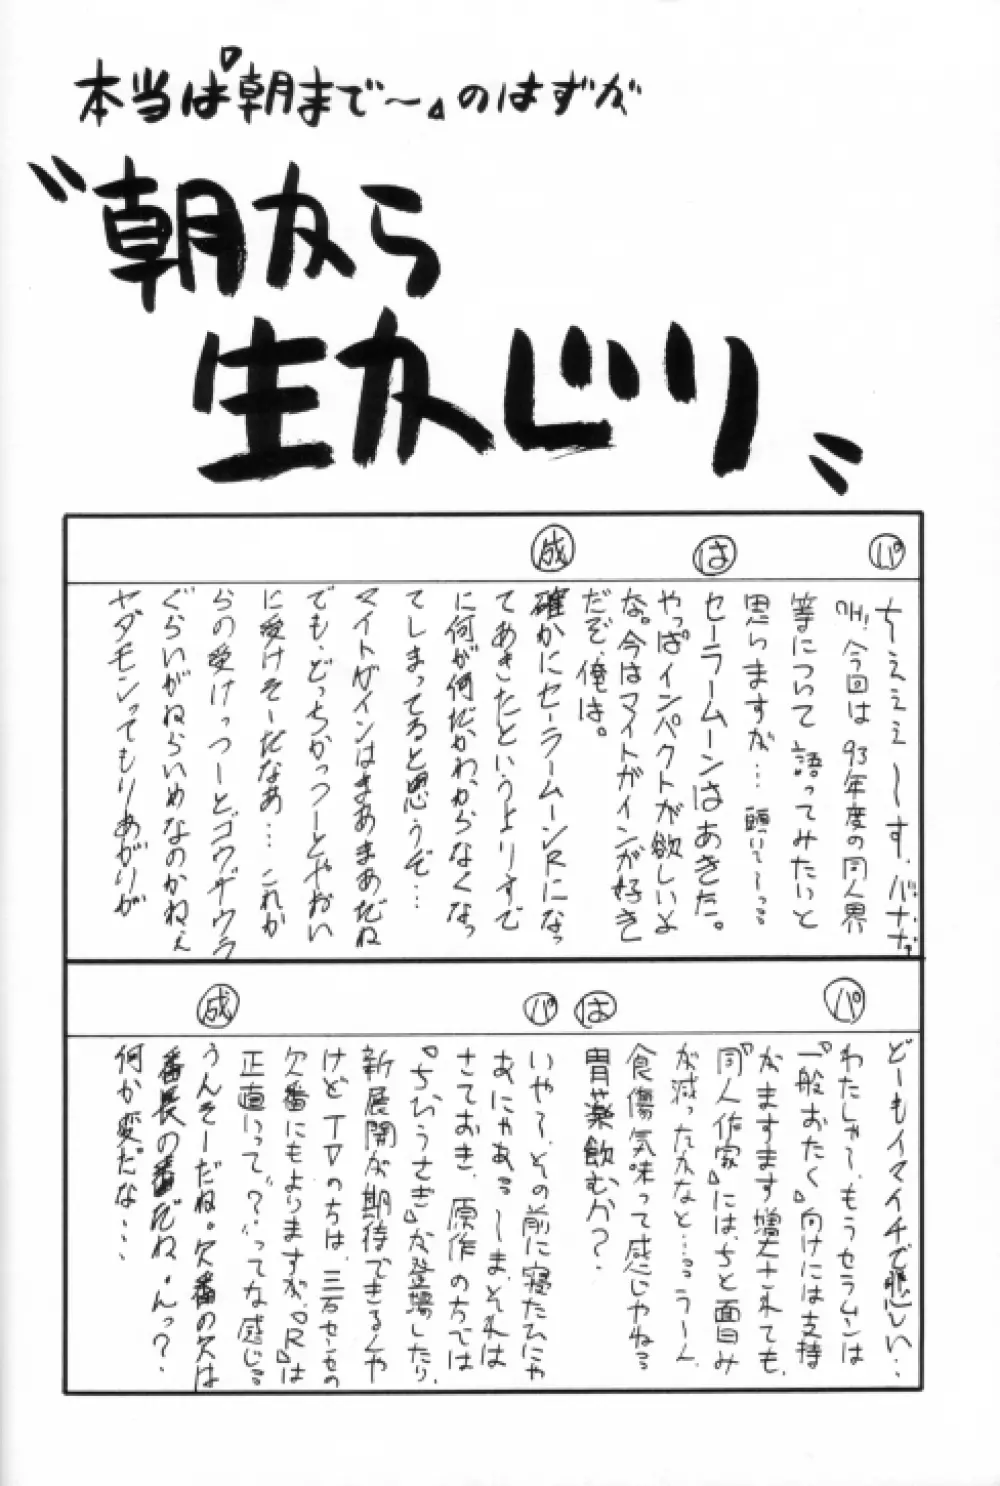 本当は『朝まで〜』のはずが
"朝から
生かじり"
パ
ちーえええ〜〜す。バナナ。
OH!今回は93年度の同人界
等について語ってみたいと
思いますが…聴いて〜っ
は
セーラームーンはあきた。
やっぱインパクトが欲しいよ
な。今はマイトガインが好き
だぞ、俺は。
成
確かにセーラームーンRになっ
てあきたというよりすで
に何が何だかわからなくなっ
てしまってると思うぞ…
マイトガインはまあまあだね
でも、どっちかっつーとやおい
に受けそーだなあ…これか
らの受けっつーと、ゴウザウラ
ぐらいがねらいめなのかねぇ
ヤダモンってもりあがりが
どーもイマイチで悲しい‥
パ
わたしゃ〜、もうセラムンは
『一般おたく』向けには支持
がますます増大されても、
『同人作家』には、ちと面白み
が減ったかなと…うーん、
食傷気味って感じやね
は
胃薬飲むか?
パ
いやその前に寝たひにゃ
あにゃあ〜ま、それは
さておき、原作の方では
『ちびうさぎ』が登場したり、
新展開が期待できるんや
けどTVのちは、三石さんの
欠番にもよりますが、『R』は
正直いって"?"ってな感じ
成
うんそーだね。欠番の欠は
番長の番だね。んっ?
何か変だな‥‥